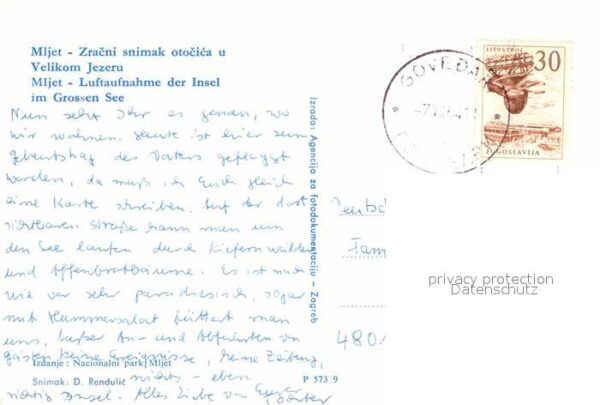 Mljet - Zračni snimak otočića u
Velikom Jezeru
Mljet - Luftaufnahme der Insel
im Grossen See
Nun seht Ihr es genau, wo
wir wohnen. Heute ist hier zum
Geburtstag des Vaters geflaggt
worden, da muß ich Euch gleich
eine Karte schreiben. Auf der dort
sichtbaren Straße kann man um
den See laufen durch Kiefernwälder
und Affenbrotbäume. Es ist nach
wie vor sehr paradiesisch, sogar
mit Hummersalat füttert man
uns. Außer An- und Abfahrten von
gästen keine Ereignisse, keine Zeitung,
Izdanje: Nacionalni park Mljet
nichts - eben
Snimak: D. Rendulić
P 573 9
richtig Insel. Alles Liebe von
Izrada: Agencija za fotodokumentaciju - Zagreb
LITOSTROJ
30
JUGOSLAVIJA
Fam
480
privacy protection
Datenschutz